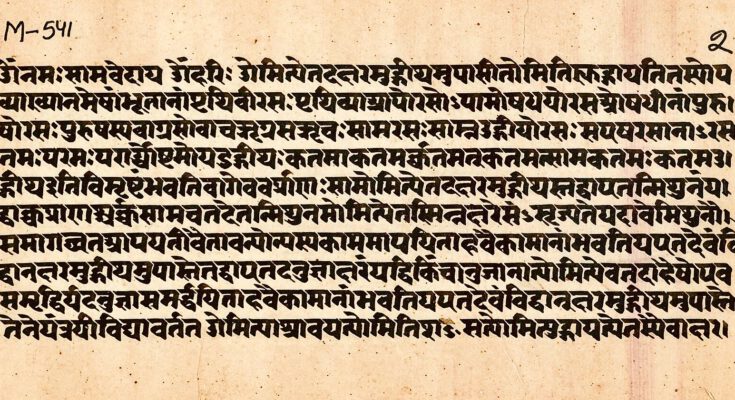 M-541
2
ॐनमःसामवेदाय ॐहरिः ॐमित्येतदक्षरमुद्गीथमुपासीतोमितिह्युद्गायतितस्योप
व्याख्यानमेषांभूतानांपृथिवीरसःपृथिव्याआपोरसोऽपामोषधयोरसओषधीनांपुरु
षोरसःपुरुषस्यवाग्रसोवाचऋग्रसऋचःसामरसःसाम्नउद्गीथोरसःसएषरसानाꣳरस
तमःपरमःपरार्द्ध्योष्टमोयउद्गीथःकतमाकतमर्क्कतमत्कतमत्सामकतमःकतमउ।
द्गीथइतिविमृष्टंभवतिवागेवर्क्प्राणःसामोमित्येतदक्षरमुद्गीथस्तद्वाएतन्मिथुनंय।
द्वाक्चप्राणश्चर्क्चसामचतदेतन्मिथुनमोमित्येतस्मिन्नक्षरेसꣳसृज्यतेयदावैमिथुनौ।
समागच्छतआपयतोवैतावन्योन्यस्यकाममापयिताहवैकामानांभवतियएतदेवंवि
द्वानक्षरमुद्गीथमुपास्तेतद्वाएतदनुज्ञाक्षरंयद्धिकिंचानुजानात्योमित्येवतदाहैषोएव
समृद्धिर्यदनुज्ञासमर्द्धयिताहवैकामानांभवतियएतदेवंविद्वानक्षरमुद्गीथमुपास्ते
तेनेयंत्रयीविद्यावर्तत ॐमित्याश्रावयत्योमितिशꣳसत्योमित्युद्गायत्येतस्यैवाक्षर।